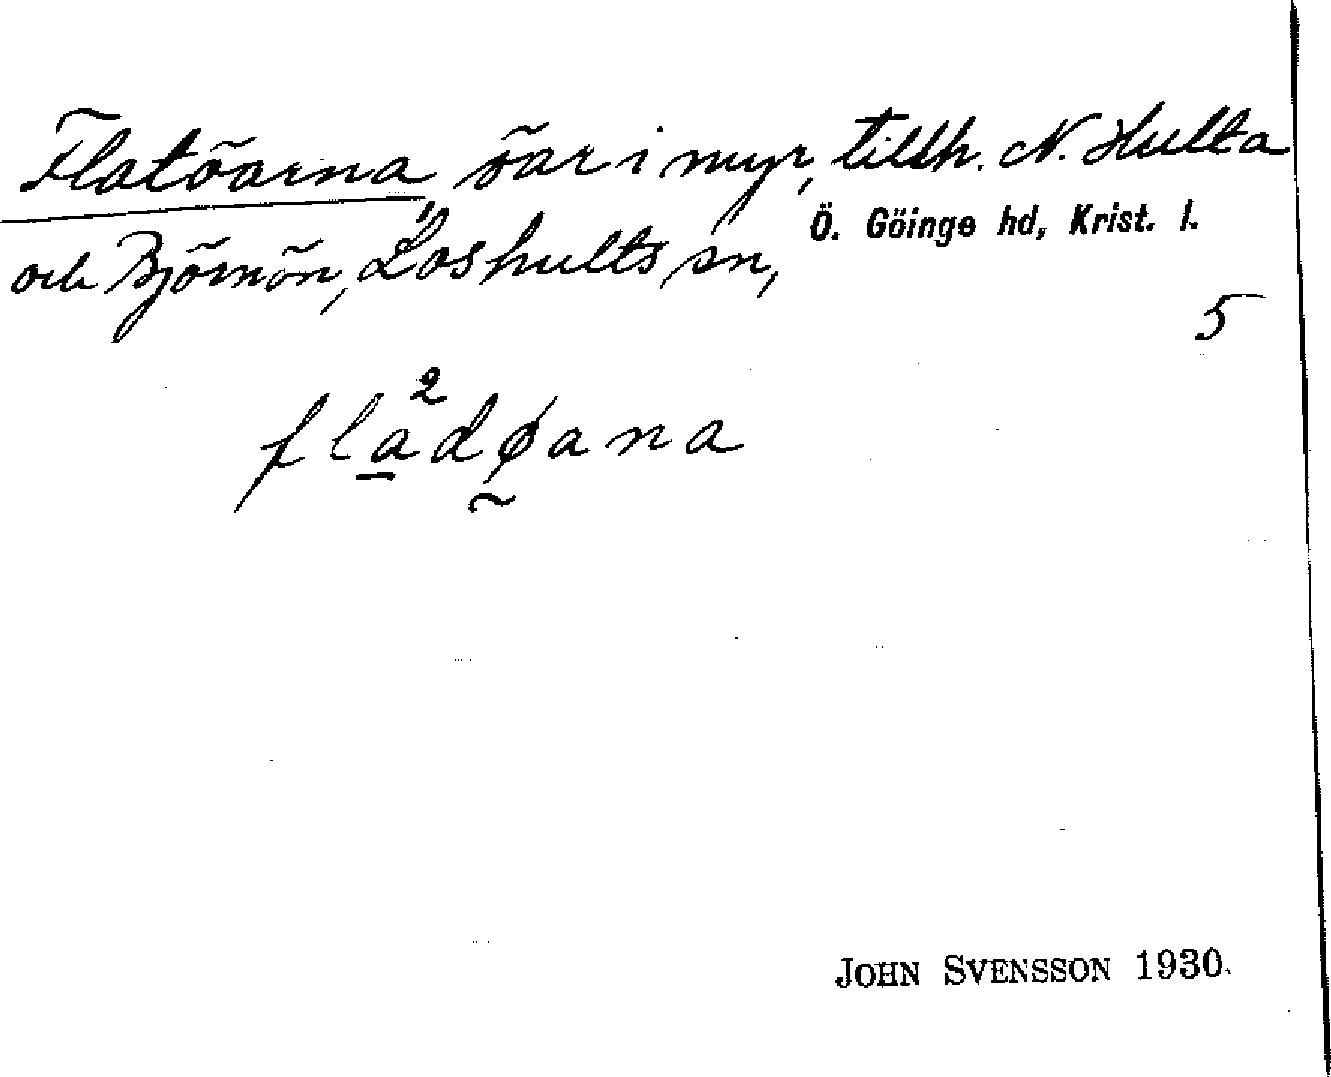 Flatöarna, öar i myr, tillh. N. Hulta
och Björnön, Loshults sn, Ö. Göinge hd, Krist. l.
5
fla²døana
JOHN SVENSSON 1930.